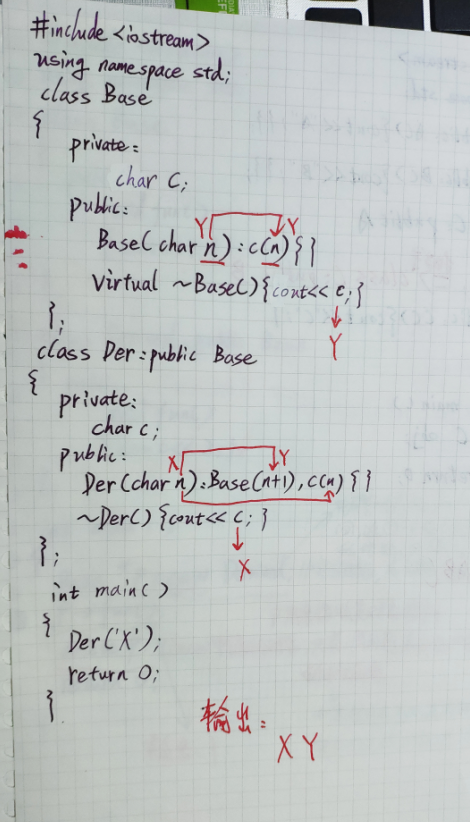 #include <iostream>
using namespace std;
class Base
{
private:
char C;
public:
Y Y
Base(char n):c(n){}
Virtual ~Base(){cout<< c;}
};
Y
class Der:public Base
{
private:
char c;
public:
X Y
Der(char n):Base(n+1),c(n){}
~Der(){cout<< c;}
};
X
int main()
{
Der('X');
return 0;
}
输出:
X Y